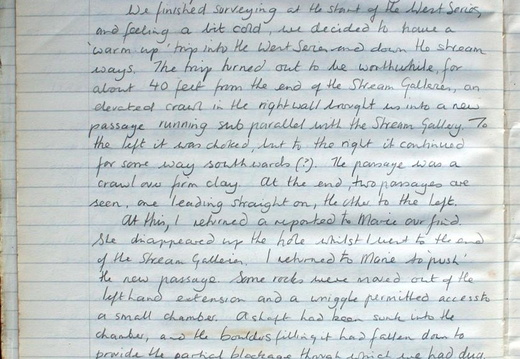 We finished surveying at the start of the West Series,
and feeling a bit cold, we decided to have a
'warm up' trip into the West Series and down the stream
ways. The trip turned out to be worthwhile, for
about 40 feet from the end of the Stream Galleries, an
elevated crawl in the right wall brought us into a new
passage running sub parallel with the Stream Gallery. To
the left it was choked, but to the right it continued
for some way southwards (?). The passage was a
crawl over firm clay. At the end, two passages are
seen, one leading straight on, the other to the left.
At this, I returned a reported to Marie our find.
She disappeared up the hole whilst I went to the end
of the Stream Galleries. I returned to Marie to 'push'
the new passage. Some rocks were moved out of the
left hand extension and a wriggle permitted access to
a small chamber. A shaft had been sunk into the
chamber, and the boulders filling it had fallen down to
provide the partial blockage though which we had dug